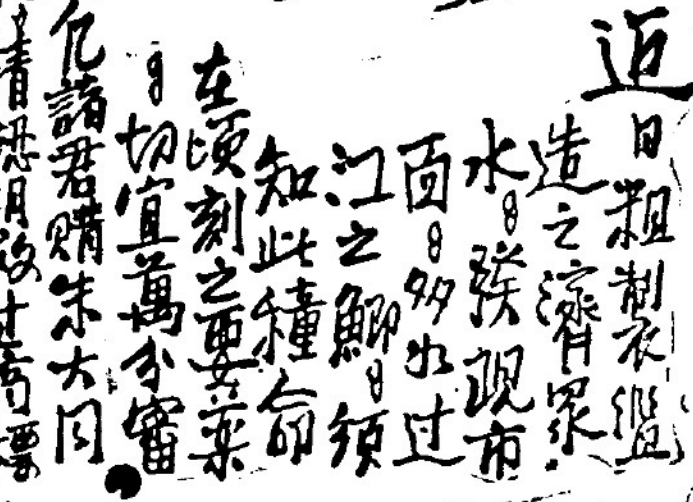 近日粗製濫
造之濟眾
水，發現市
面，多如过
江之鯽，須
知此種命
在頃刻之要薬
，切宜萬分審
凡諸君購朱大同